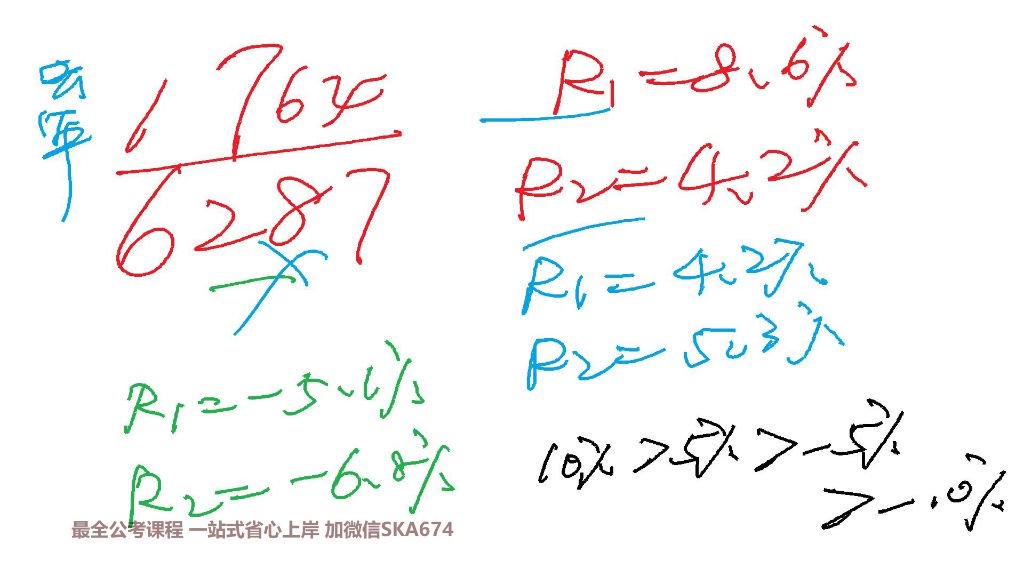 去年
1764
6287
R1=8.6%
R2=4.2%
R1=4.2%
R2=5.3%
R1=-5.1%
R2=-6.8%
10%>5%>-5%
>-10%
最全公考课程 一站式省心上岸 加微信SKA674